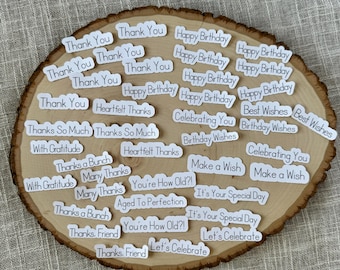 Thank You
Thank You
Happy Birthday
Happy Birthday
Thank You
Thank You
Happy Birthday
Happy Birthday
Thank You
Thank You
Happy Birthday
Happy Birthday
Thank You
Heartfelt Thanks
Happy Birthday
Happy Birthday
Thanks So Much
Thanks So Much
Celebrating You
Best Wishes
Best Wishes
With Gratitude
Heartfelt Thanks
Birthday Wishes
Birthday Wishes
Thanks a Bunch
Make a Wish
Celebrating You
With Gratitude
Many Thanks
You're How Old?!
Make a Wish
Many Thanks
Aged To Perfection
It's Your Special Day
Thanks a Bunch
You're How Old?!
It's Your Special Day
Thanks, Friend
Let's Celebrate
Thanks, Friend
Let's Celebrate